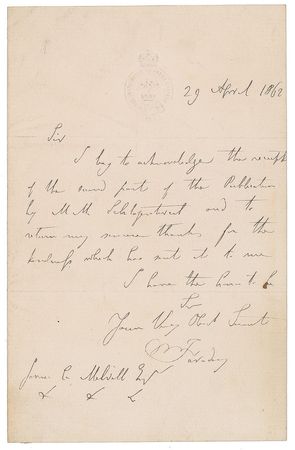 29 April 1862
Sir
I beg to acknowledge the receipt
of the second part of the Publication
by M M Schlagintweit and to
return my sincere thanks for the
kindness which has sent it to me
I have the honor to be
Sir
Your Very Obet Servt
M Faraday
James C. Melvill Esqr
&c &c &c